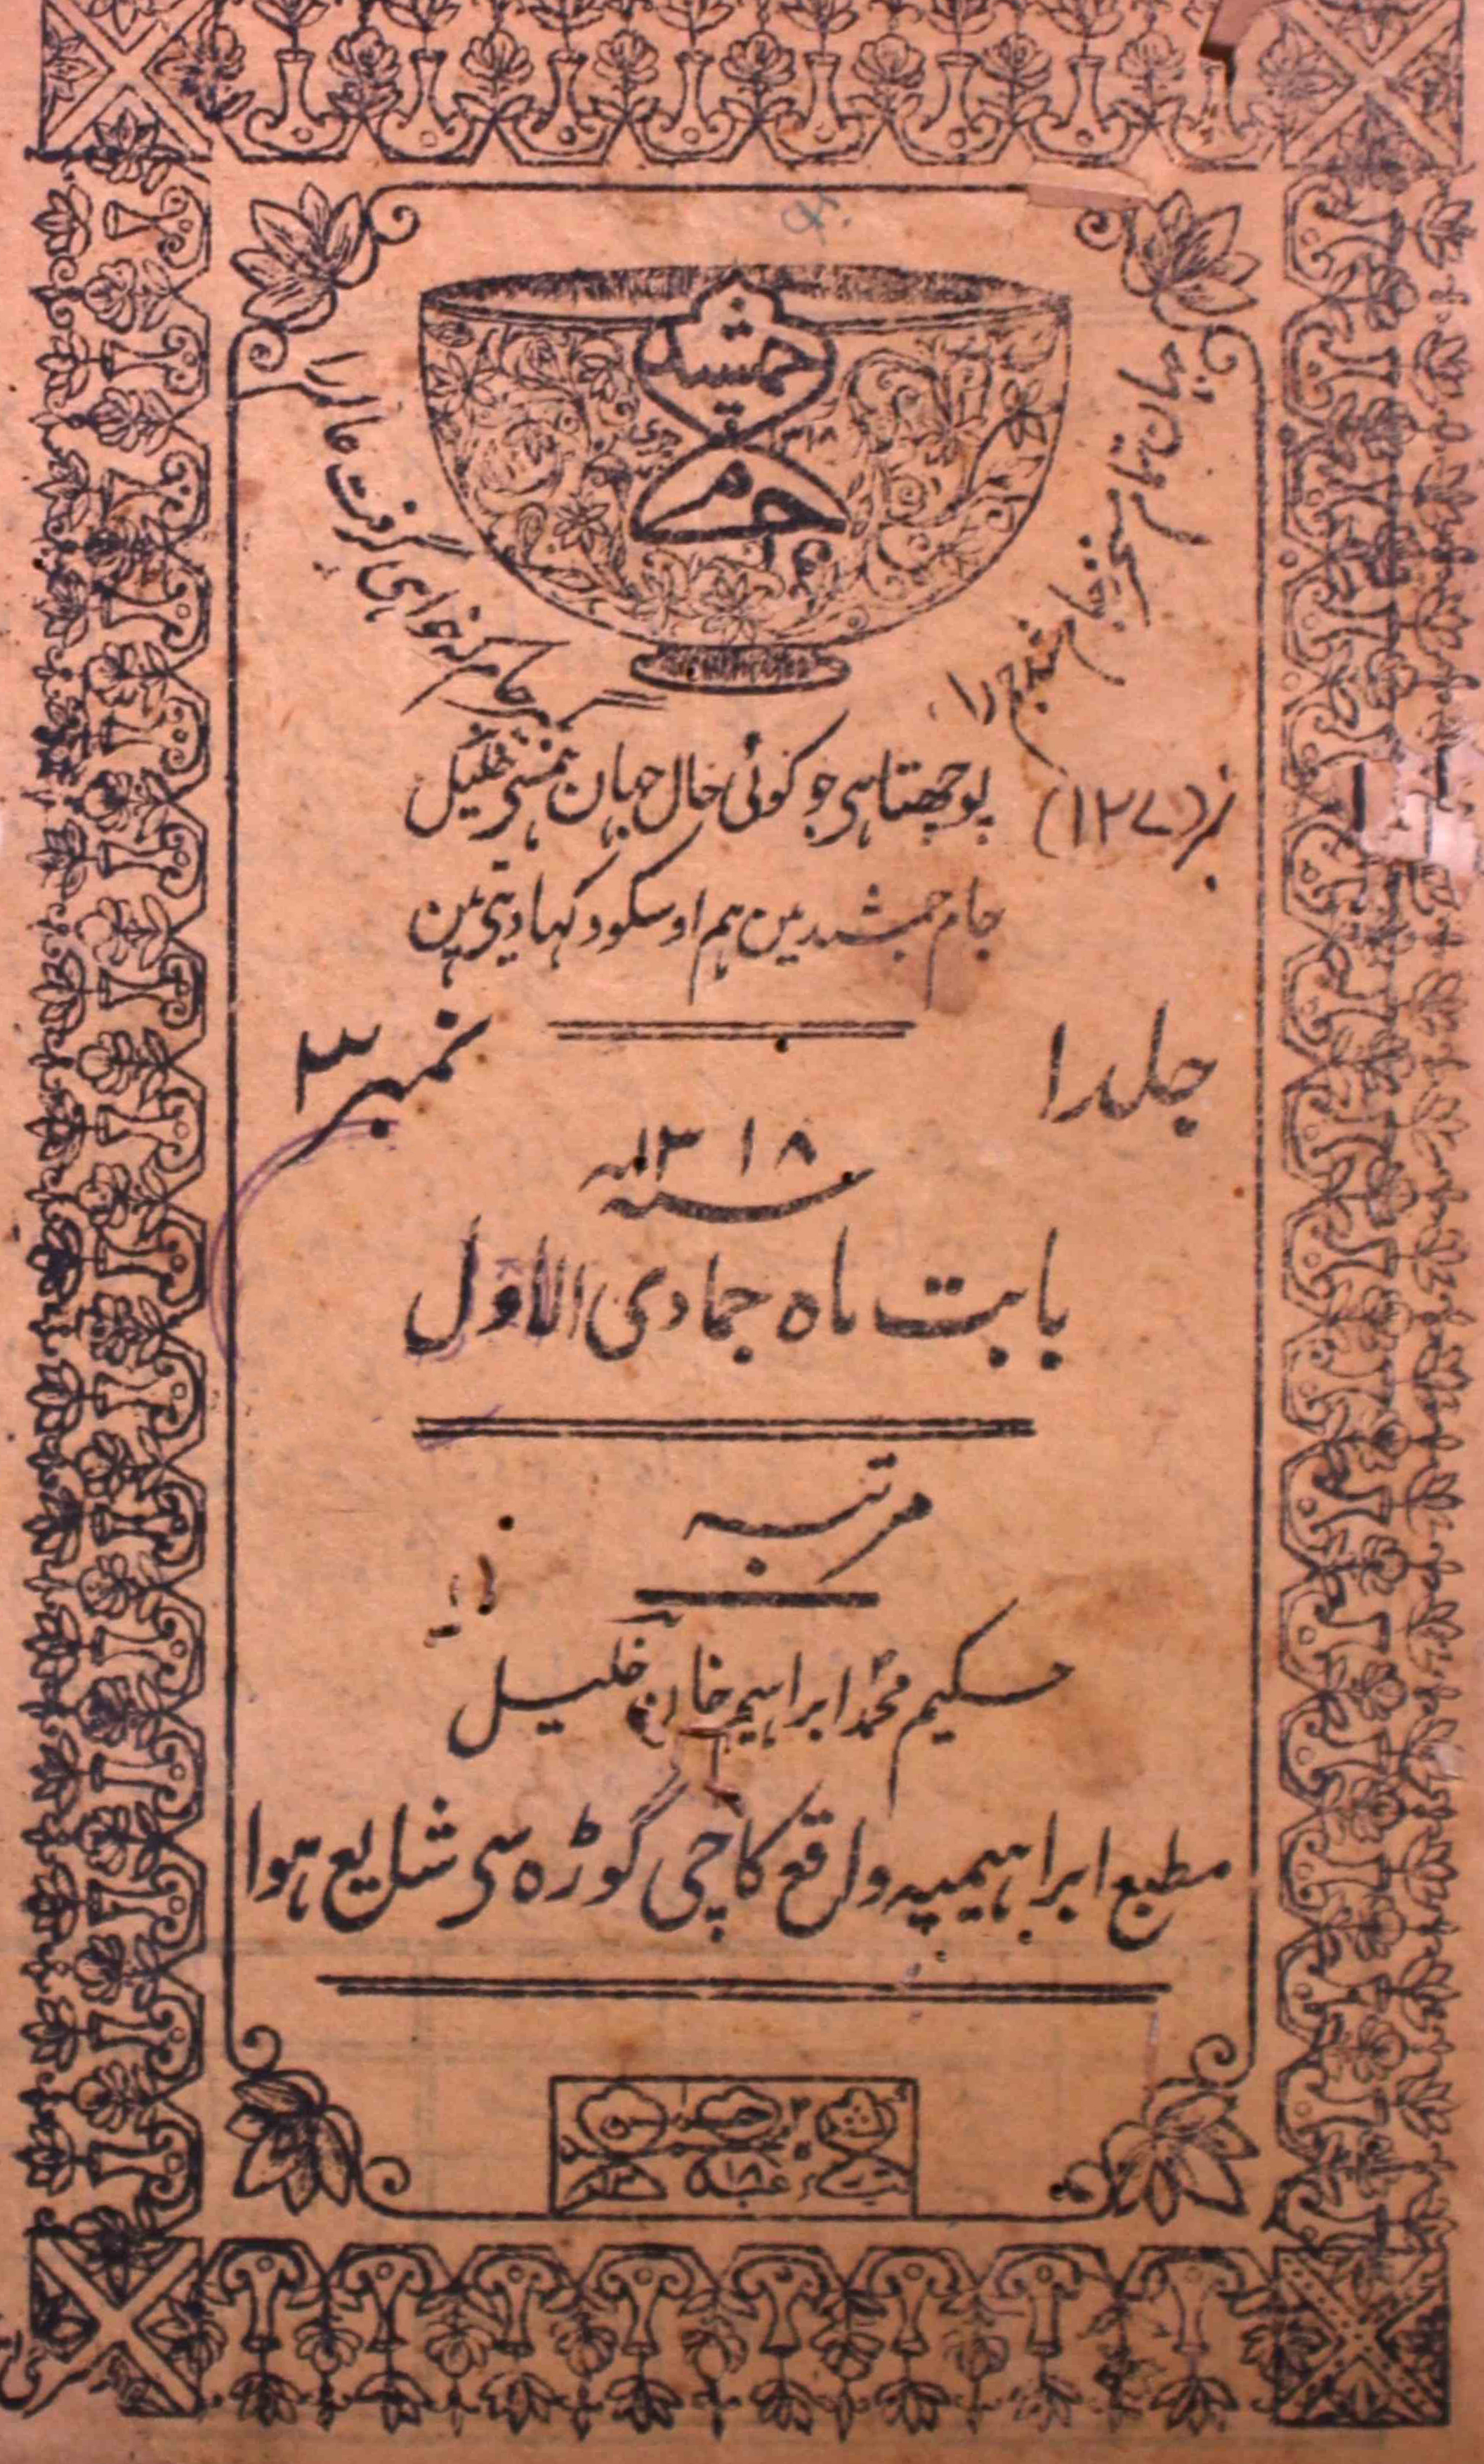 جام
جمشید
۱۳۱۸ ہجری
جہان نما
جام جم را
گرفت عالم را
نمبر (۱۲۷)
پوچھتا ہی جو کوئی حال جہان ہمسی خلیل
جام جمشید مین ہم اوسکو دکہا دیتی ہین
جلد ۱
نمبر ۳
سنہ ۱۳۱۸
بابت ماہ جمادی الاول
مرتبہ
حکیم محمد ابراہیم خان خلیل
مطبع ابراہیمیہ واقع کاچی گوڑہ سی شایع ہوا